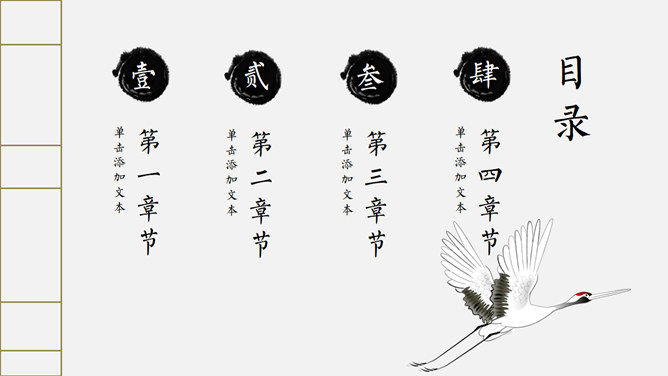 目录
壹
第一章节
单击添加文本
贰
第二章节
单击添加文本
叁
第三章节
单击添加文本
肆
第四章节
单击添加文本